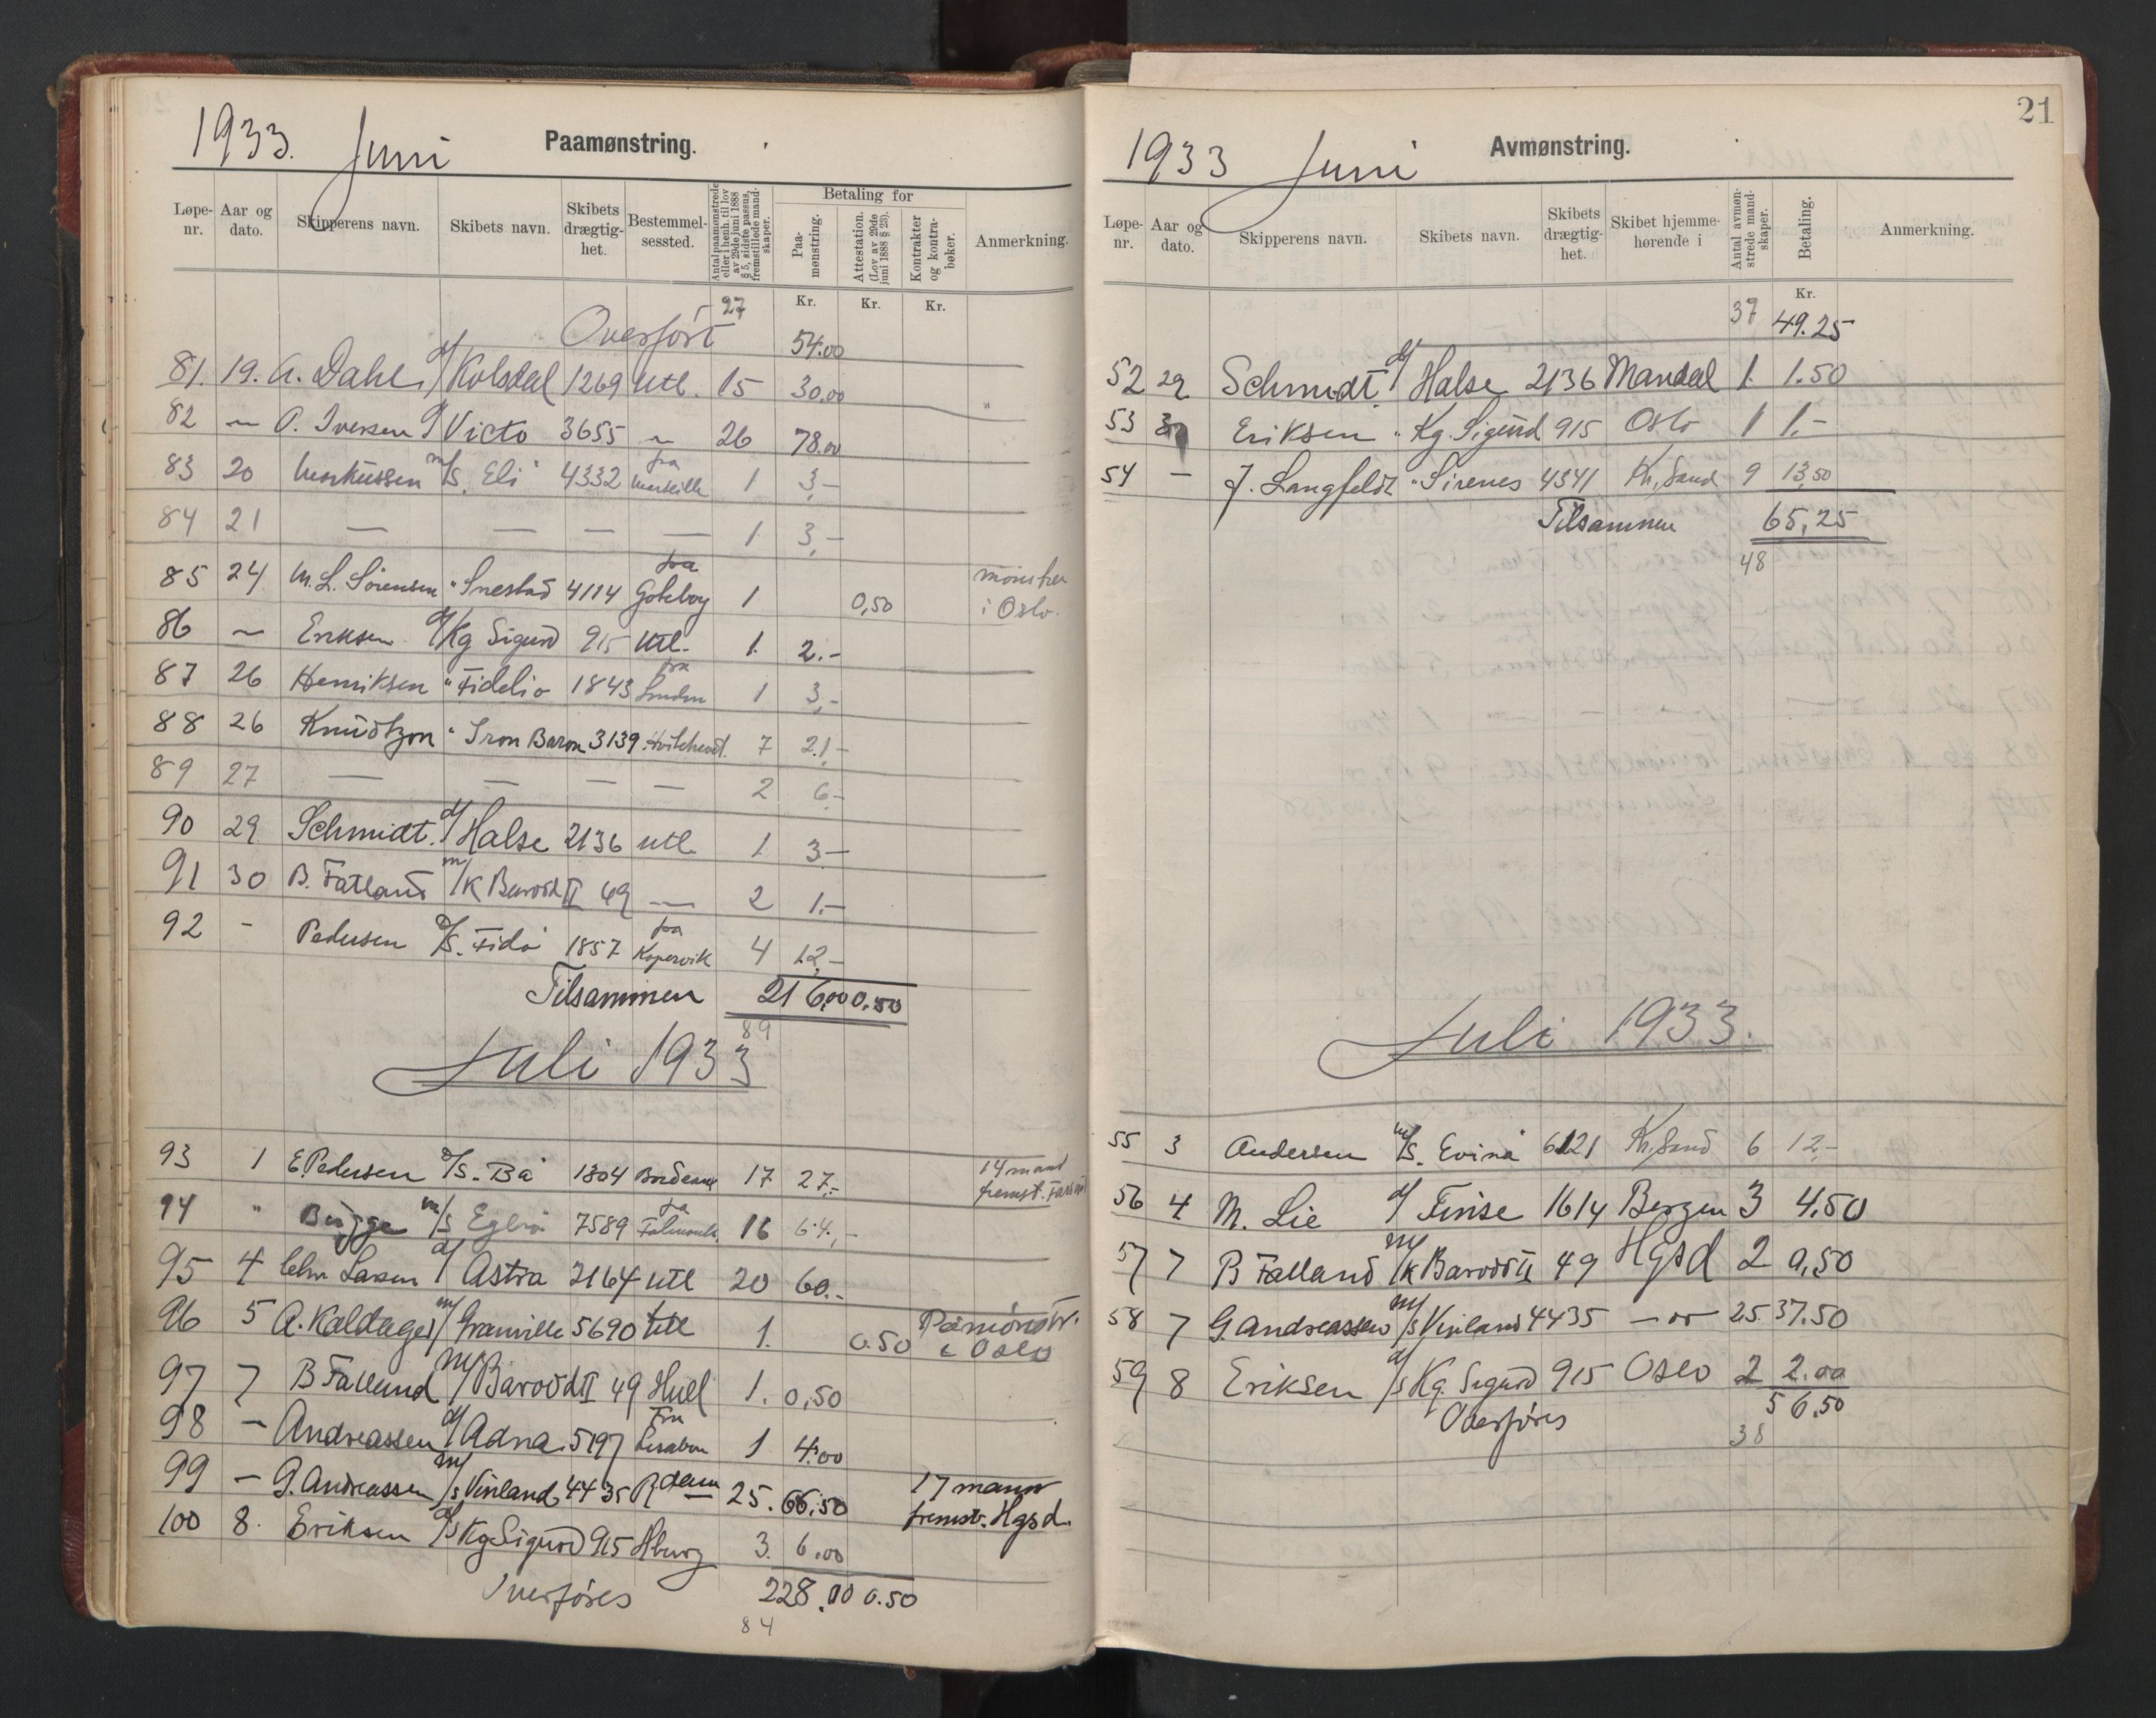 1933. Juni Paamønstring.
Løpe-nr. Aar og dato. Skipperens navn. Skibets navn. Skibets drægtig-het. Bestemmel-sessted. Antal paamønstrede eller i henh. til lov av 29de juni 1888 § 5, sidste passus, fremstillede mand-skaper. Betaling for Paa-mønstring. Attestation. (Lov av 29de juni 1888 § 23). Kontrakter og kontra-bøker. Anmerkning.
Kr. Kr. Kr.
Overført 27 54.00
81. 19. A. Dahl d/ Kolsdal 1269 Utl. 15 30.00
82 — O. Iversen d/ Victo 3655 — 26 78.00
83 20 Markussen m/s. Eli 4332 fra Marseille 1 3,-
84 21 — — — — 1 3,-
85 24 M. L. Sörensen " Snestad 4114 fra Göteborg 1 0,50 mönstret i Oslo.
86 — Eriksen d/ Kg Sigurd 915 Utl. 1. 2.-
87 26 Henriksen " Fidelio 1843 fra London 1 3,-
88 26 Knudtzon " Iron Baron 3139 7 21,-
89 27 — — — — 2 6,-
90 29 Schmidt. d/ Halse 2136 Utl. 1. 3-
91 30 B. Fatland m/k Barodd II 49 — 2 1.-
92 - Pedersen d/s. Fido 1857 fra Kopervik 4 12,-
Tilsammen 216,00 0.50
89
Juli 1933
93 1 E Pedersen d/s. Bå 1304 Bordeaux 17 27,- 14 mand fremst. Farsund
94 " Bugge m/s Eglia 7589 fra 16 64,-
95 4 Chr Larsen d/ Astra 2164 Utl 20 60.-
96 5 A. Kaldager m/ Granville 5690 Utl 1. 0.50 Påmönstr. i Oslo
97 7 B Fatland m/ Barodd II 49 Hull 1. 0,50
98 — Andreassen d/ Adna 5197 Fra Lisabon 1 4.00
99 — G. Andreassen m/s Vinland 4435 R.dam 25. 66,50 17 mann fremst. Hgsd.
100 8. Eriksen d/s Kg Sigurd 915 Hburg 3. 6.00
Overføres 228.00 0.50
84
21
1933 Juni Avmønstring.
Løpe-nr. Aar og dato. Skipperens navn. Skibets navn. Skibets drægtig-het. Skibet hjemme-hørende i Antal avmøn-strede mand-skaper. Betaling. Anmerkning.
Kr.
37 49.25
52 29 Schmidt. d/ Halse 2136 Mandal 1. 1.50
53 30 Eriksen " Kg. Sigurd 915 Oslo 1 1.-
54 — J. Langfeldt " Sirenes 4341 Kr,Sand 9 13,50
Tilsammen 65,25
48
Juli 1933.
55 3 Andersen m/s. Evina 6121 Kr,Sand 6 12,-
56 4 M. Lie d/ Finse 1614 Bergen 3 4,50
57 7 B Fatland m/k Barodd II 49 Hgsd 2 0,50
58 7 G Andreassen m/s Vinland 4435 — 25. 37.50
59 8 Eriksen d/s Kg. Sigurd 915 Oslo 2 2.00
Overføres 56.50
38